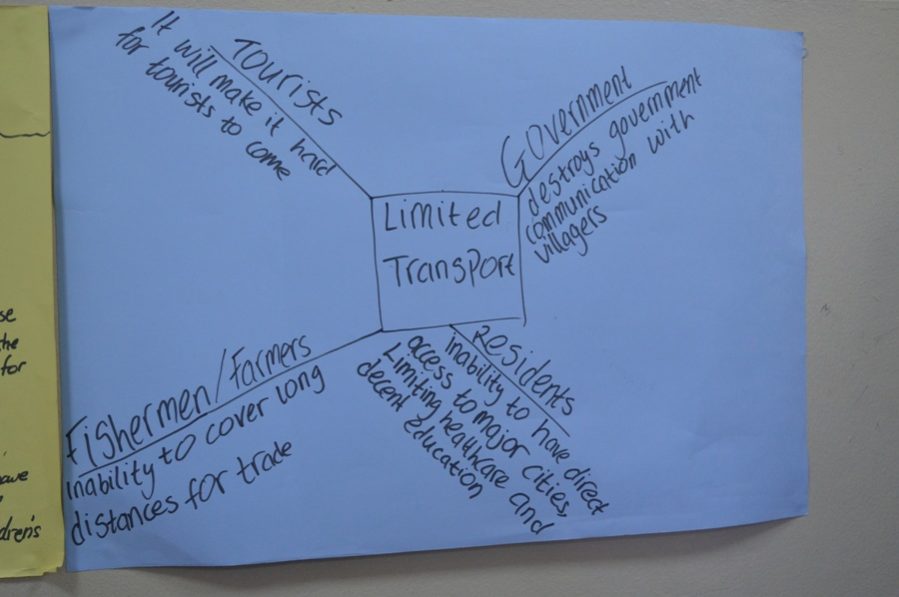 Tourists
It will make it hard
for tourists to
come
Government
destroys government
communication with
villagers
Limited
Transport
Fishermen/Farmers
inability to cover long
distances for trade
Residents
inability to have direct
access to major cities,
Limiting healthcare and
decent education
se
the
for
have
dren's